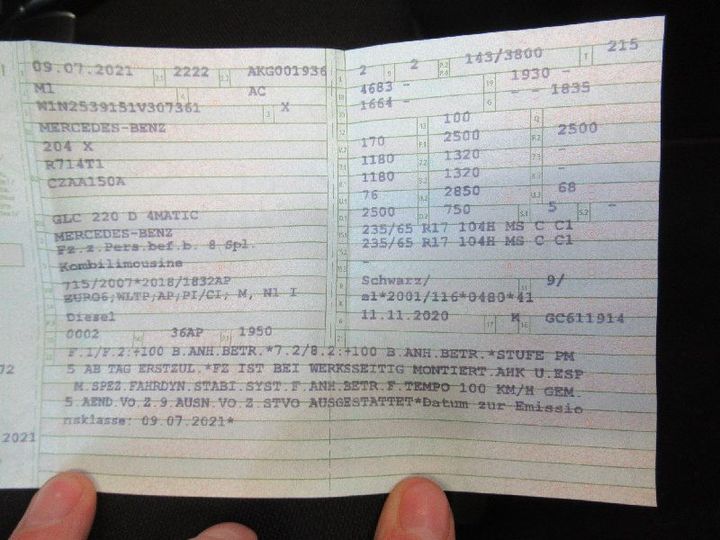 09.07.2021 2222 AKG001936
M1 AC
W1N2539151V307361 X
MERCEDES-BENZ
204 X
R714T1
CZAA150A
GLC 220 D 4MATIC
MERCEDES-BENZ
Fz.z.Pers.bef.b. 8 Spl.
Kombilimousine
715/2007*2018/1832AP
EURO6;WLTP;AP;PI/CI; M, N1 I
Diesel
0002 36AP 1950
2 2 143/3800 215
4683 - 1930 -
1664 - - - 1835
100
170 2500 2500
1180 1320 -
1180 1320 -
76 2850 68
2500 750 5 -
235/65 R17 104H MS C C1
235/65 R17 104H MS C C1
-
-
Schwarz/ 9/
e1*2001/116*0480*41
11.11.2020 K GC611914
F.1/F.2:+100 B.ANH.BETR.*7.2/8.2:+100 B.ANH.BETR.*STUFE PM
5 AB TAG ERSTZUL.*FZ IST BEI WERKSSEITIG MONTIERT.AHK U.ESP
M.SPEZ.FAHRDYN.STABI.SYST.F.ANH.BETR.F.TEMPO 100 KM/H GEM.
5.AEND.VO.Z.9.AUSN.VO.Z.STVO AUSGESTATTET*Datum zur Emissio
nsklasse: 09.07.2021*
72
2021